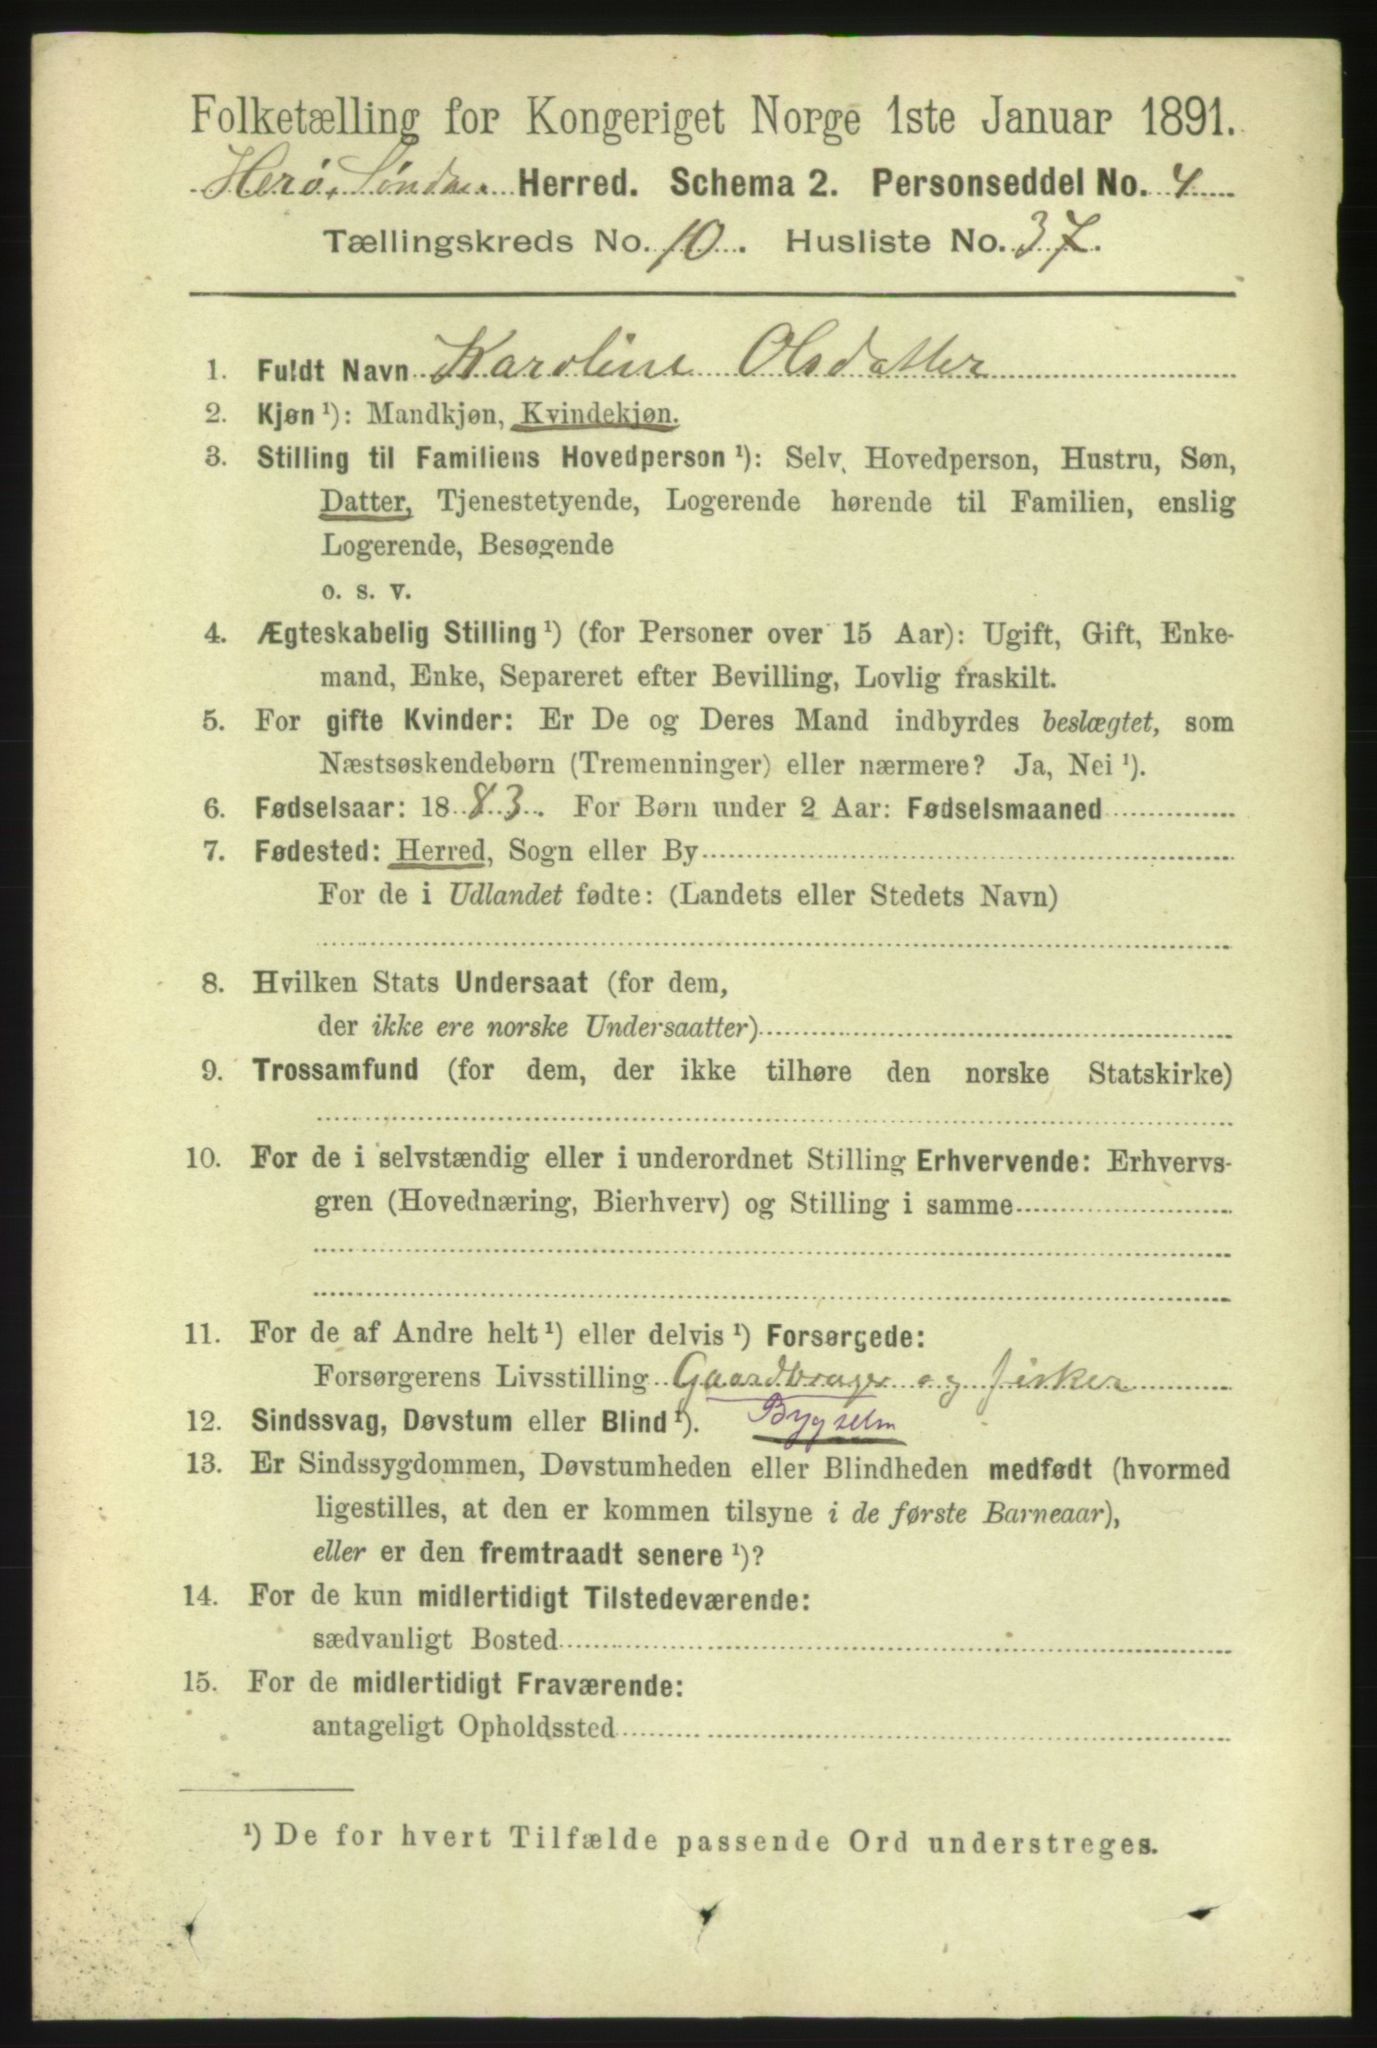 Folketælling for Kongeriget Norge 1ste Januar 1891.
Herø, Søndm. Herred. Schema 2. Personseddel No. 4
Tællingskreds No. 10. Husliste No. 37.
1. Fuldt Navn Karoline Olsdatter
2. Kjøn ¹): Mandkjøn, Kvindekjøn.
3. Stilling til Familiens Hovedperson ¹): Selv Hovedperson, Hustru, Søn,
Datter, Tjenestetyende, Logerende hørende til Familien, enslig
Logerende, Besøgende
o. s. v.
4. Ægteskabelig Stilling ¹) (for Personer over 15 Aar): Ugift, Gift, Enke-
mand, Enke, Separeret efter Bevilling, Lovlig fraskilt.
5. For gifte Kvinder: Er De og Deres Mand indbyrdes beslægtet, som
Næstsøskendebørn (Tremenninger) eller nærmere? Ja, Nei ¹).
6. Fødselsaar: 1883. For Børn under 2 Aar: Fødselsmaaned
7. Fødested: Herred, Sogn eller By
For de i Udlandet fødte: (Landets eller Stedets Navn)
8. Hvilken Stats Undersaat (for dem,
der ikke ere norske Undersaatter)
9. Trossamfund (for dem, der ikke tilhøre den norske Statskirke)
10. For de i selvstændig eller i underordnet Stilling Erhvervende: Erhvervs-
gren (Hovednæring, Bierhverv) og Stilling i samme
11. For de af Andre helt ¹) eller delvis ¹) Forsørgede:
Forsørgerens Livsstilling Gaardbruger og fisker
12. Sindssvag, Døvstum eller Blind ¹). Bygselm
13. Er Sindssygdommen, Døvstumheden eller Blindheden medfødt (hvormed
ligestilles, at den er kommen tilsyne i de første Barneaar),
eller er den fremtraadt senere ¹)?
14. For de kun midlertidigt Tilstedeværende:
sædvanligt Bosted
15. For de midlertidigt Fraværende:
antageligt Opholdssted
¹) De for hvert Tilfælde passende Ord understreges.